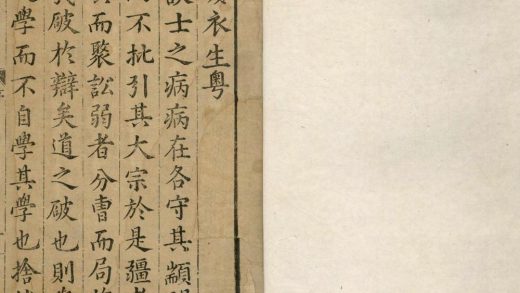 衣生粵
士之病病在各守其顓
而不批引其大宗於是彊
而聚訟弱者分曹而局
破於辯矣道之破也則
學而不自學其學也捨